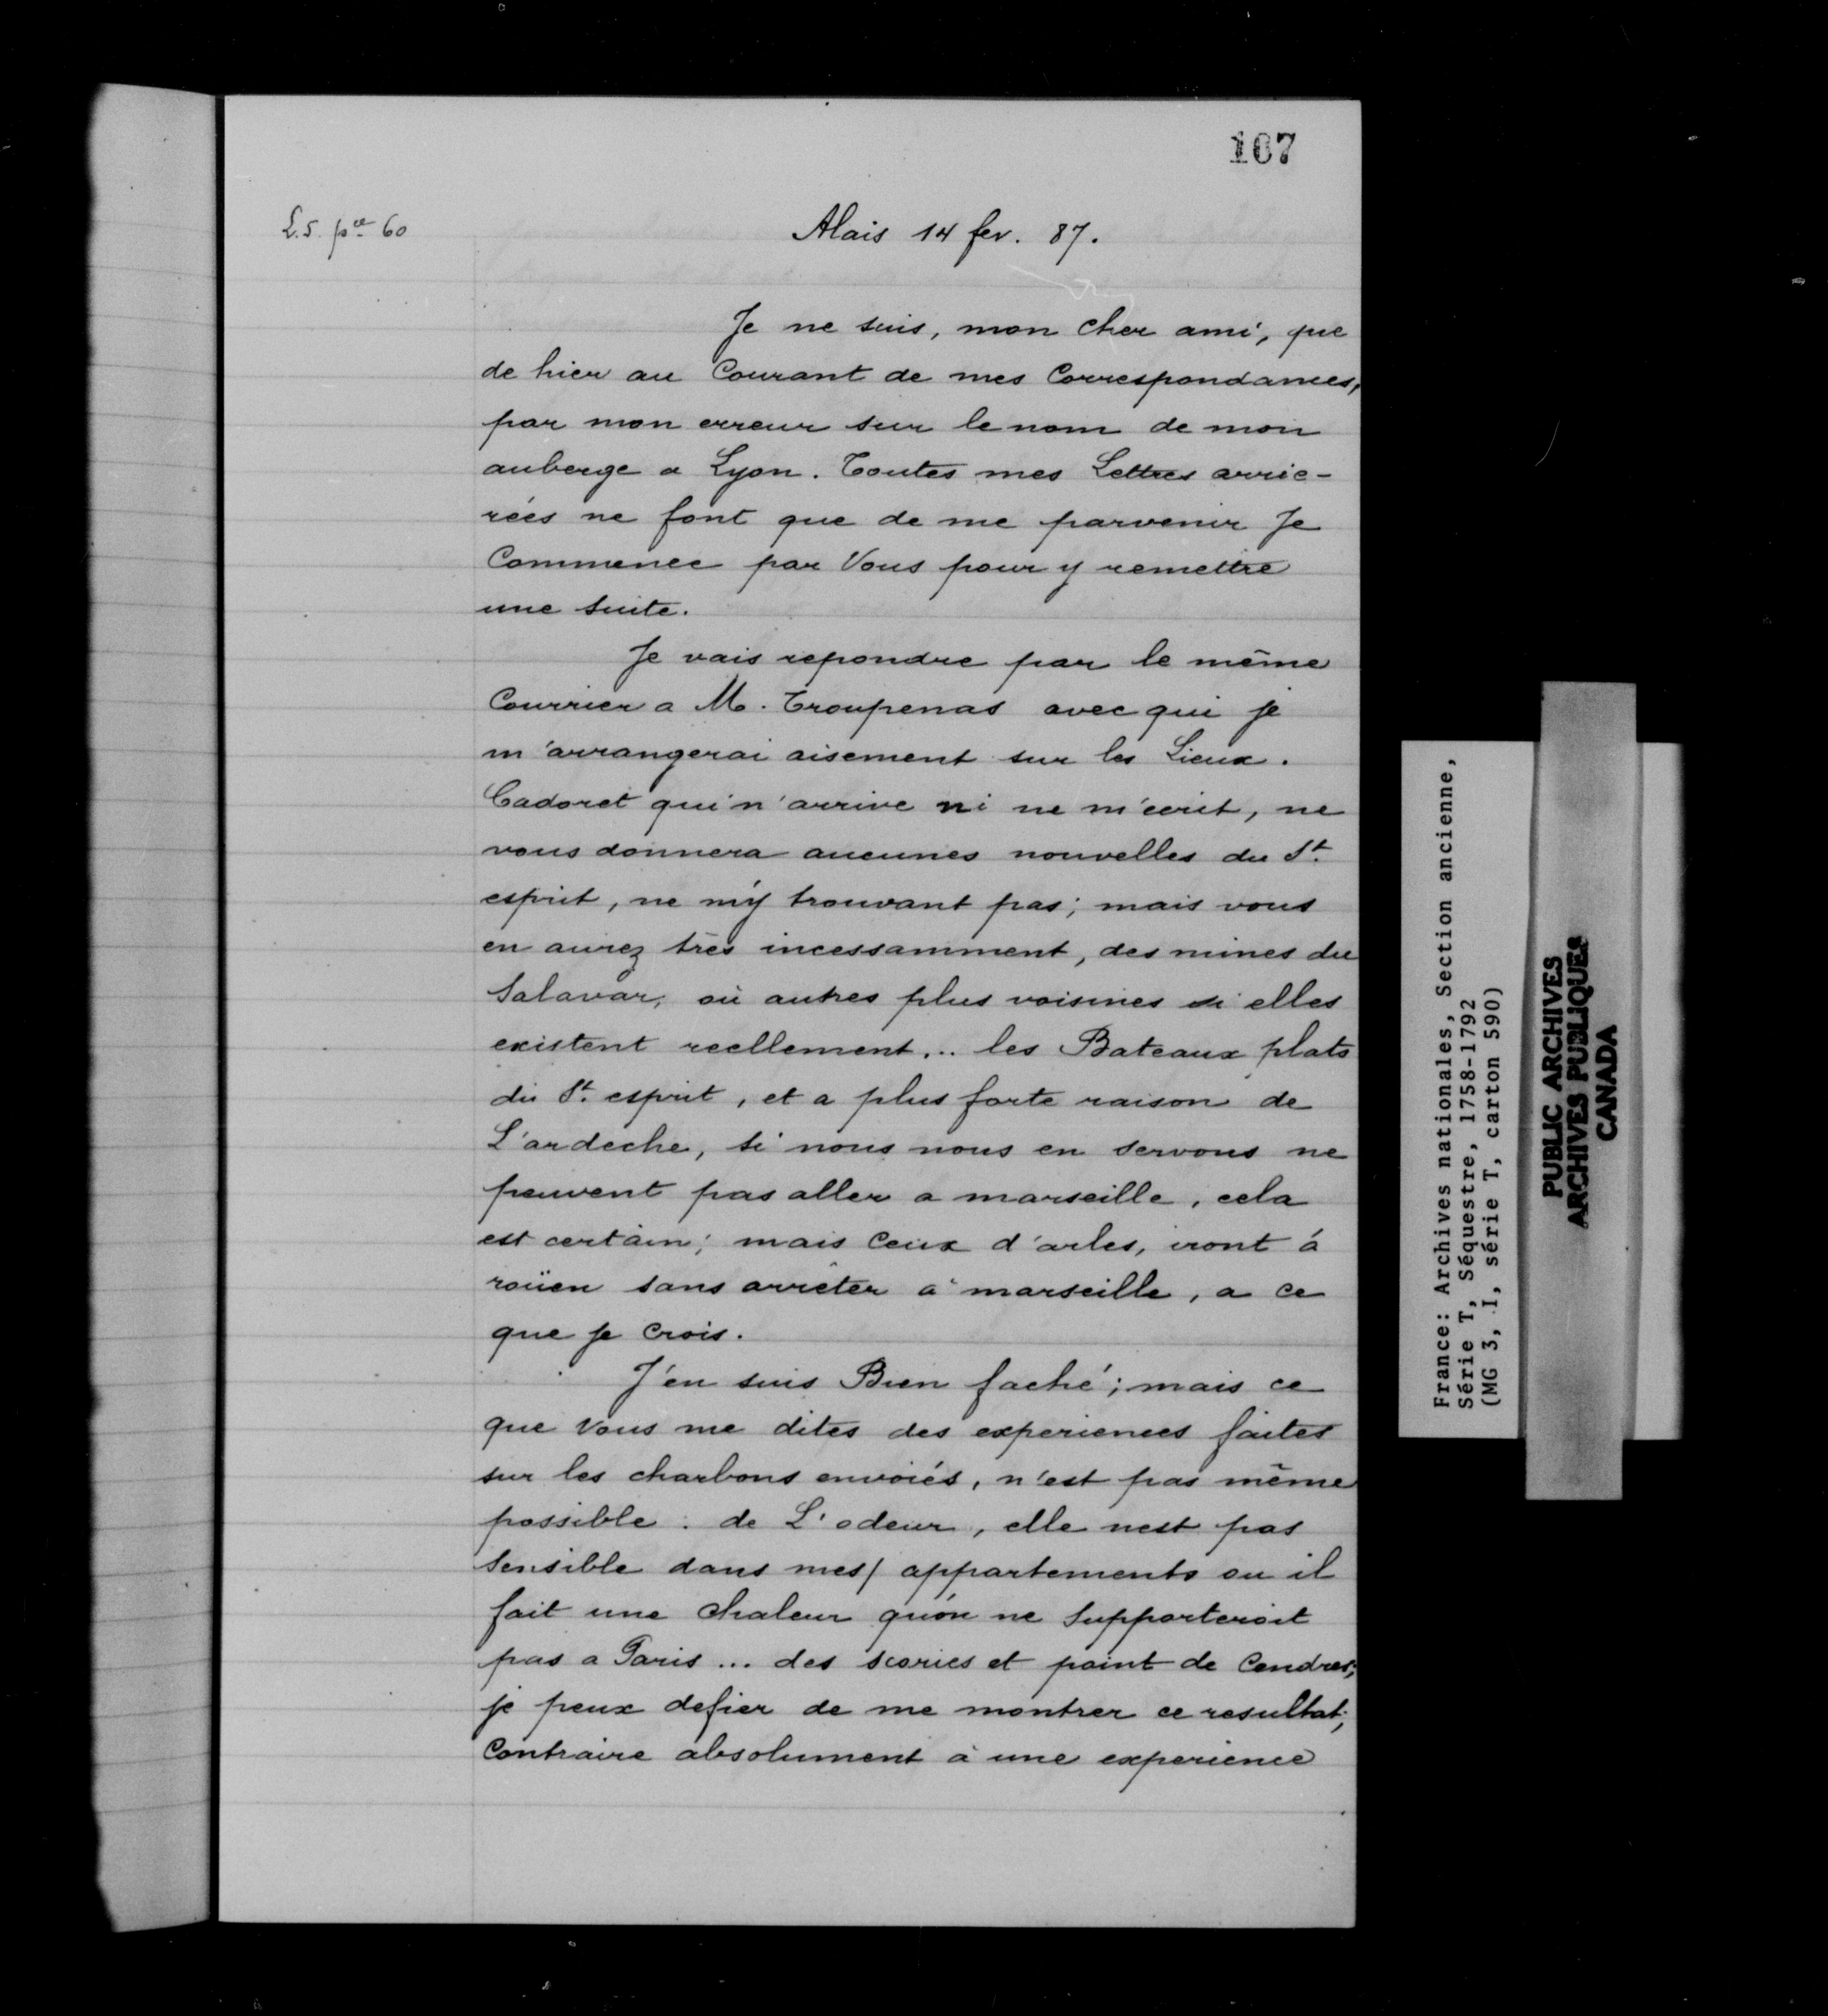 107
L.S. pce 60
Alais 14 fev. 87.
Je ne suis, mon cher ami, que
de hier au Courant de mes Correspondances,
par mon erreur sur le nom de mon
auberge a Lyon. Toutes mes Lettres arrie-
rées ne font que de me parvenir Je
Commence par Vous pour y remettre
une suite.
Je vais repondre par le même
Courrier a M. Troupenas avec qui je
m'arrangerai aisement sur les Lieux.
Cadoret qui n'arrive ni ne m'ecrit, ne
vous donnera aucunes nouvelles du St.
esprit, ne m'y trouvant pas; mais vous
en aurez très incessamment, des mines du
Salavar, où autres plus voisines si elles
existent reellement... les Bateaux plats
du St. esprit, et a plus forte raison de
L'ardeche, si nous nous en servons ne
peuvent pas aller a marseille, cela
est certain; mais Ceux d'arles, iront à
roüen sans arrêter à marseille, a ce
que je Crois.
J'en suis Bien faché; mais ce
que Vous me dites des experiences faites
sur les charbons envoiés, n'est pas même
possible. de L'odeur, elle nest pas
sensible dans mes/ appartements ou il
fait une chaleur qu'on ne supporteroit
pas a Paris... des scories et point de Cendres;
je peux defier de me montrer ce resultat;
Contraire absolument à une experience
France: Archives nationales, Section ancienne,
Série T, Séquestre, 1758-1792
(MG 3, I, série T, carton 590)
PUBLIC ARCHIVES
ARCHIVES PUBLIQUES
CANADA